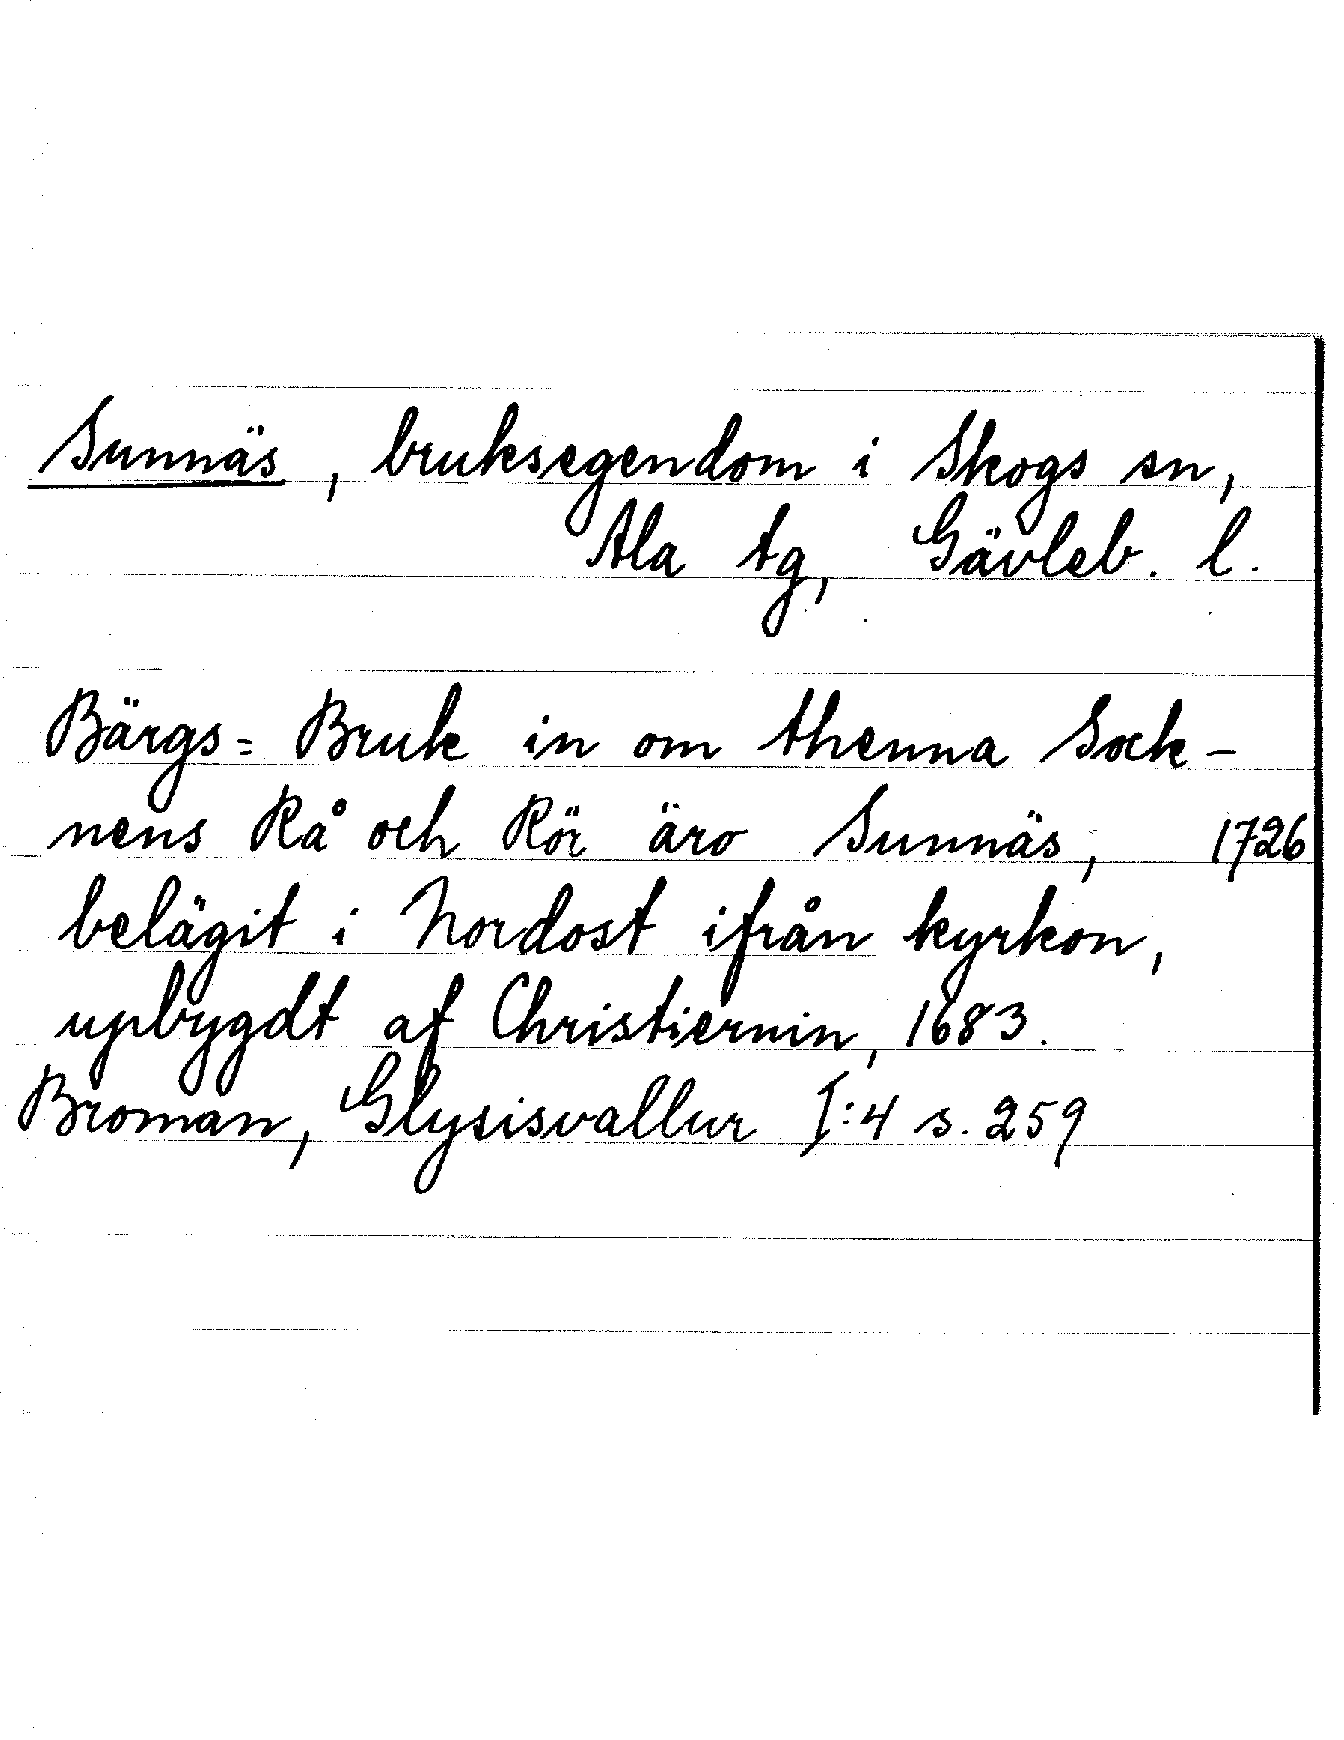 Sunnäs, bruksegendom i Skogs sn,
Ala tg, Gävleb. l.
Bärgs= Bruk in om thenna Sock-
nens Rå och Rör äro Sunnäs, 1726
belägit i Nordost ifrån kyrkon,
upbygdt af Christiernin, 1683.
Broman, Glysisvallur I:4 s. 259